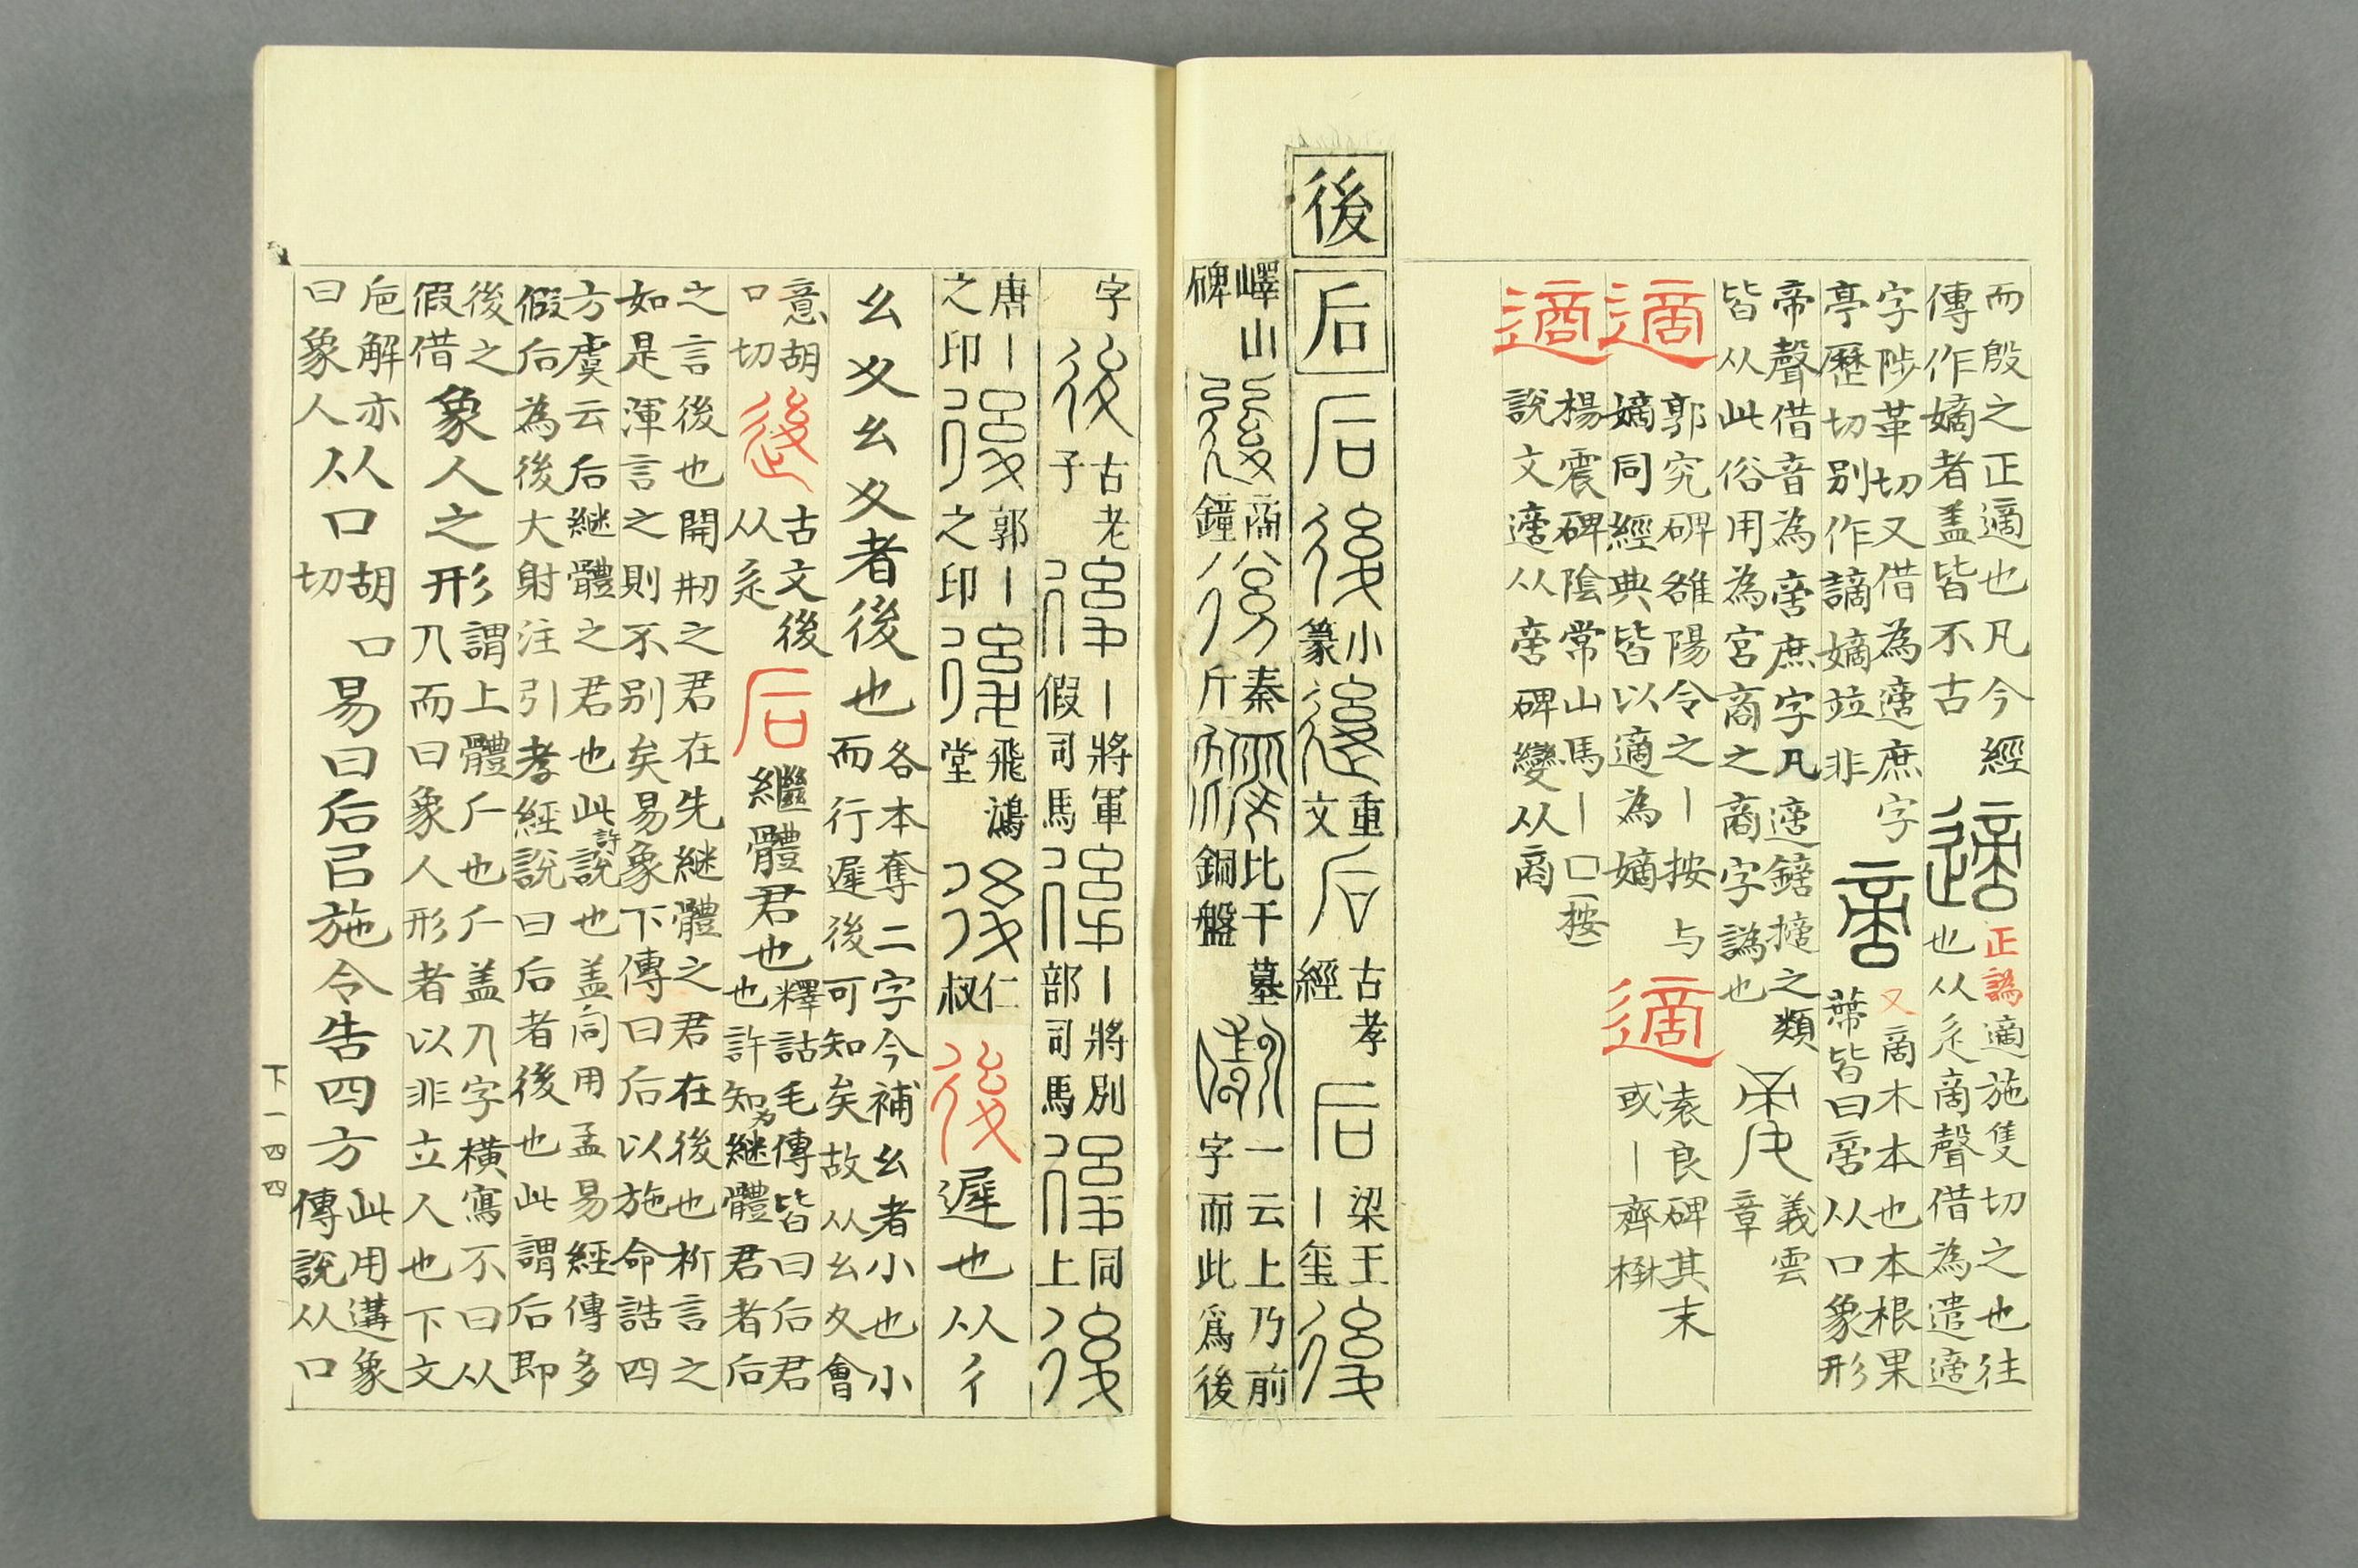 而殷之正適也凡今經
傳作嫡者盖皆不古
正譌適施隻切之也往
也从辵啇聲借為遣適
字陟革切又借為適庶字
亭歷切别作謫嫡竝非
又啇木本也本根果
蔕皆曰啻从口象形
帝聲借音為啻庶字凡適鏑擿之類
皆从此俗用為宮商之商字譌也
義雲
章
適
郭究碑雒陽令之丨按与
嫡同經典皆以適為嫡
適
袁良碑其末
或丨齊楙
適
楊震碑陰常山馬丨口按
說文適从啻碑變从啇
後
后
后
後
小
篆
後
重
文
后
古孝
經
后
梁王
丨璽
後
嶧山
碑
後
商
鐘
後
秦
斤
比干墓
銅盤
一云上乃前
字而此爲後
字
後
古老
子
後
丨將軍
假司馬
後
丨將別
部司馬
後
同
上
後
唐丨
之印
後
郭丨
之印
後
飛鴻
堂
後
仁
叔
後
遲也从彳
幺夊幺夊者後也
各本奪二字今補幺者小也小
而行遲後可知矣故从幺夊會
意胡
口切
後
古文後
从辵
后
繼體君也
釋詁毛傳皆曰后君
也許知为継體君者后
之言後也開刱之君在先継體之君在後也析言之
如是渾言之則不别矣易象下傳曰后以施命誥四
方虞云后継體之君也此許說也盖同用孟易經傳多
假后為後大射注引孝經說曰后者後也此謂后即
後之
假借
象人之形
謂上體𠂆也𠂆盖𠆢字橫寫不曰从
𠆢而曰象人形者以非立人也下文
卮解亦
曰象人
从口
胡口
切
易曰后㠯施令告四方
此用遘象
傳說从口
下一四四